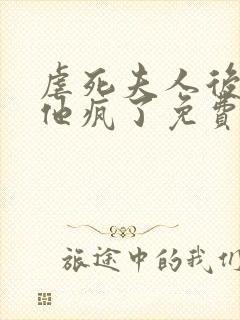 虐死夫人後
他疯了免費
旅途中的我们